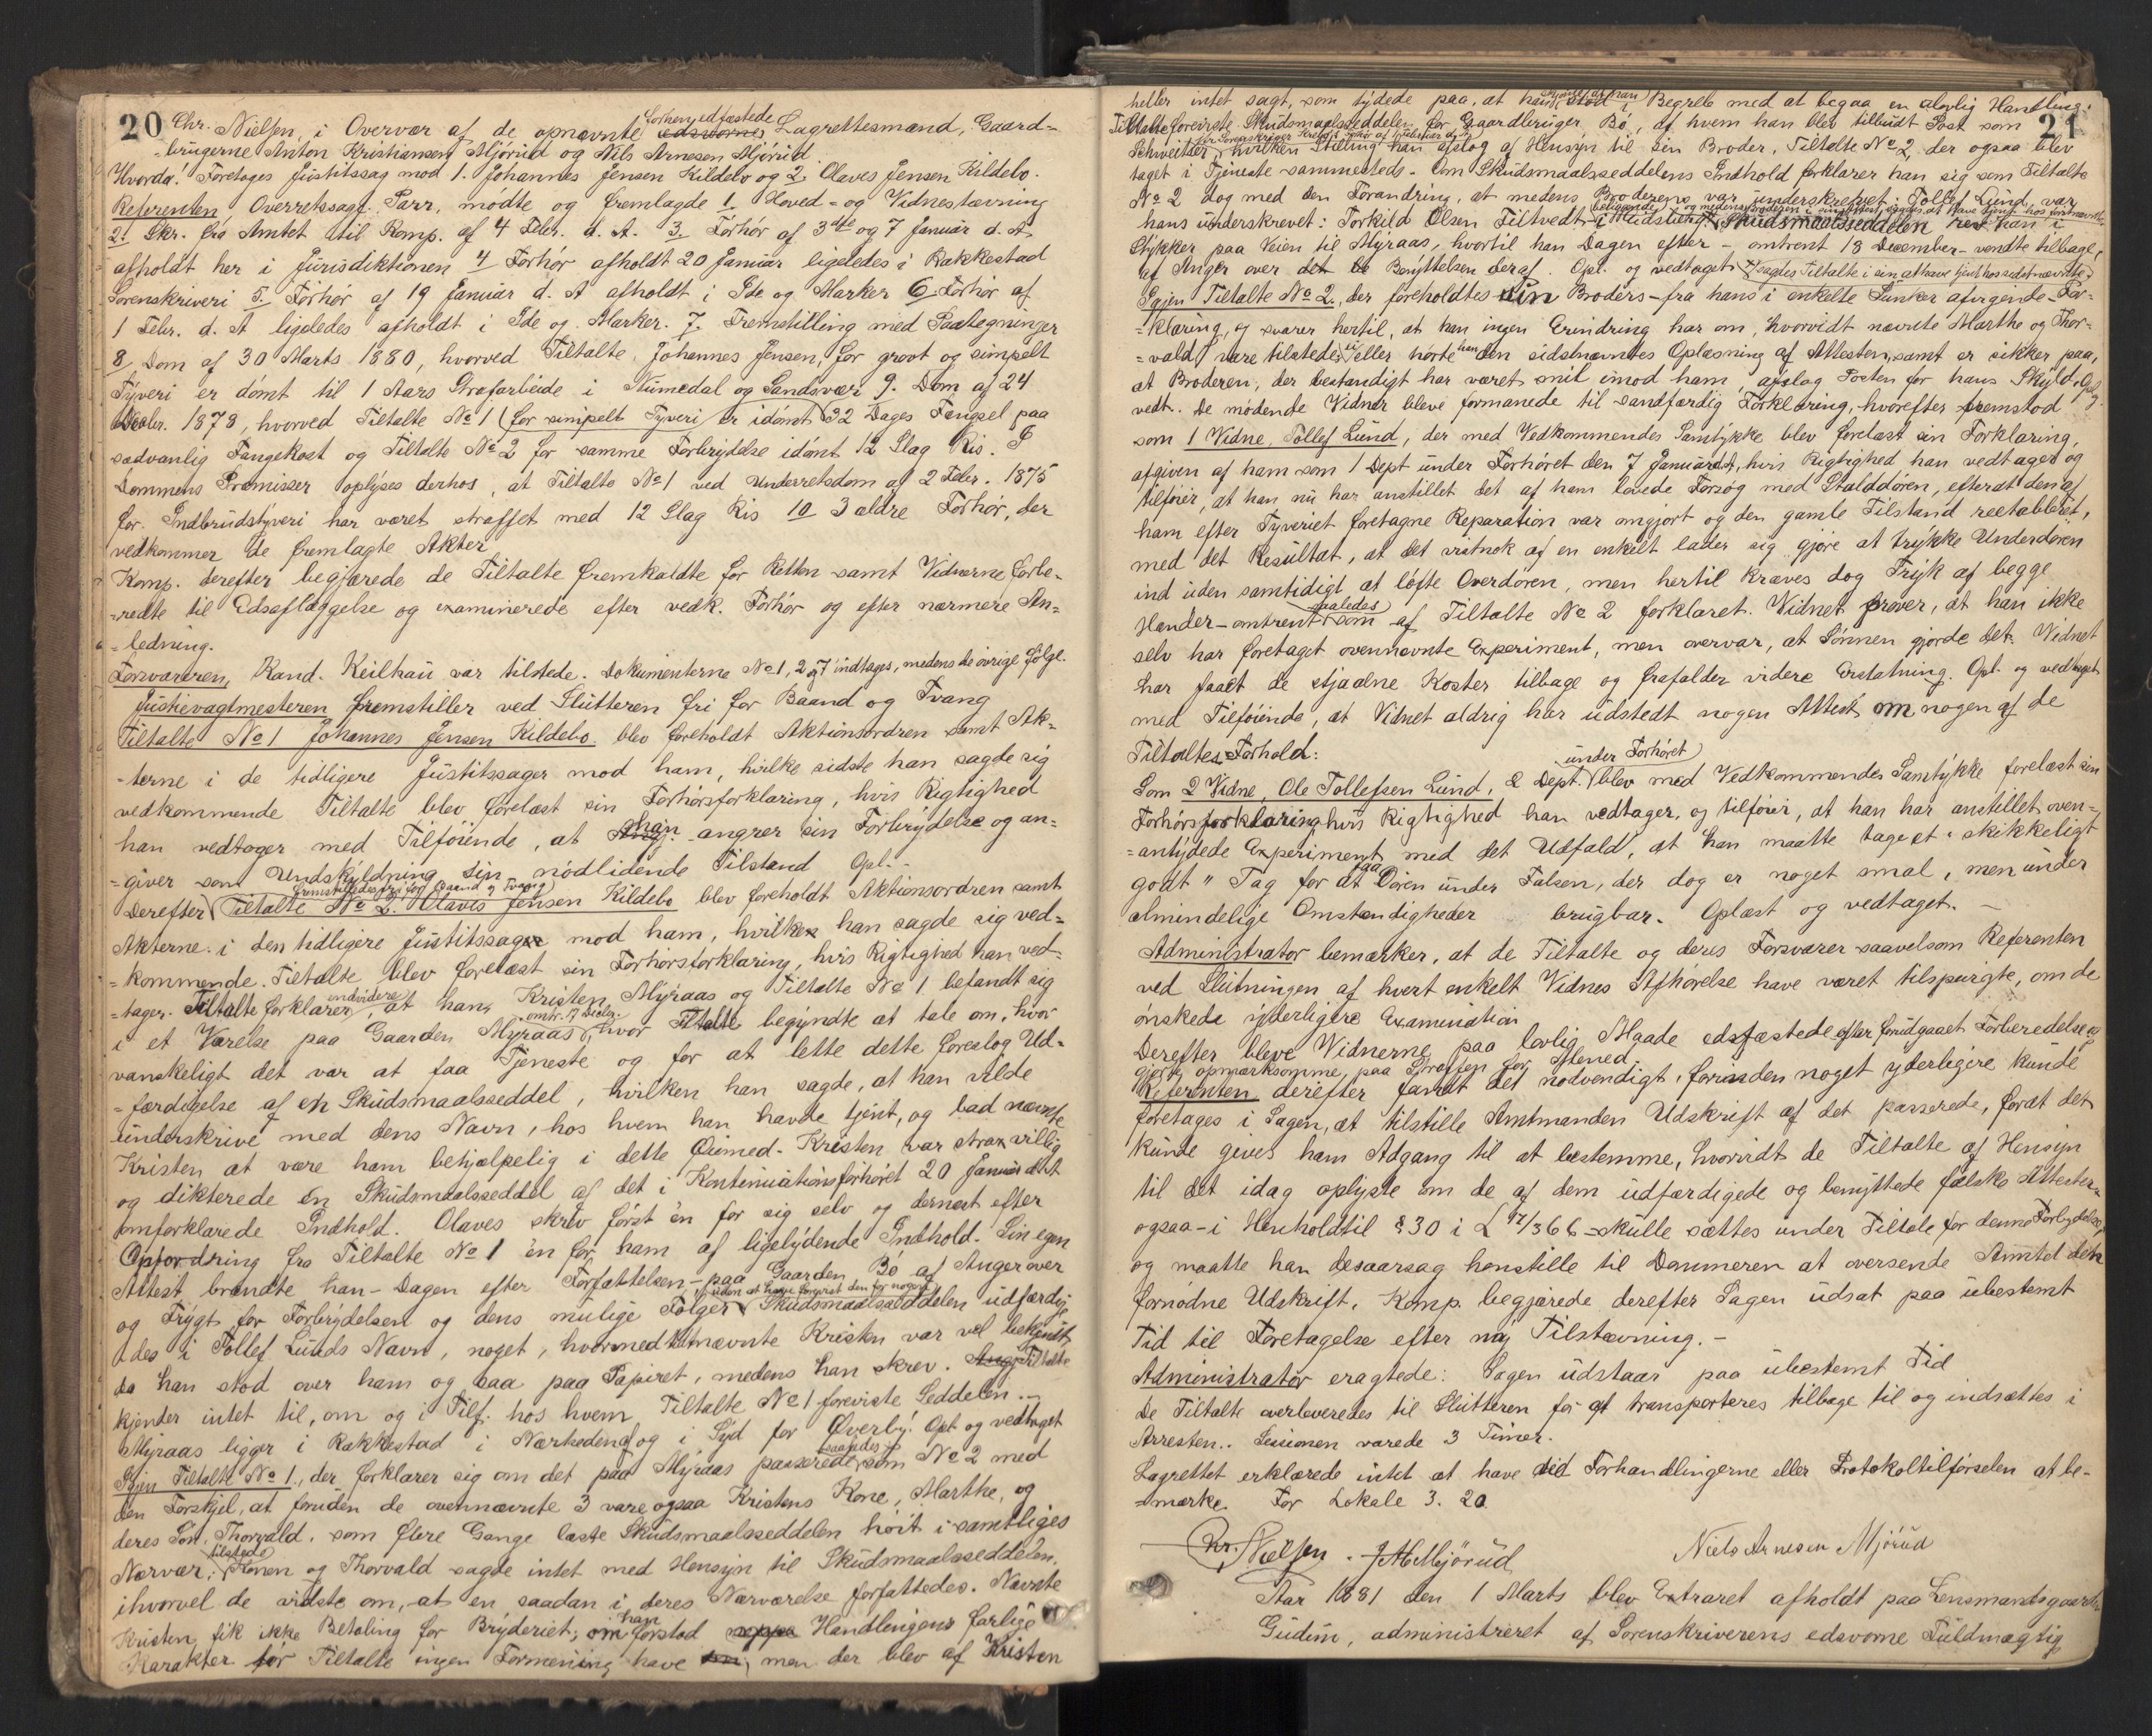 20
Chr. Nielsen, i Overvær af de opnævnte forhen edfæstede Lagrettesmænd, Gaard=
=brugerne Anton Kristiansen Mjörud og Nils Arnesen Mjörud.
Hvorda! Foretoges Justitssag mod 1. Johannes Jensen Kildebo og 2. Olaves Jensen Kildebo.
Referenten, Overretssagf. Parr, mödte og fremlagde 1. Hoved- og Vidnestævning
2. Skr. fra Amtet til Komp. af 4 Febr. d. A. 3. Forhör af 3die og 7 Januar d. A.
afholdt her i Jurisdiktionen 4 Forhör afholdt 20 Januar ligeledes i Rakkestad
Sorenskriveri 5. Forhör af 19 Januar d. A afholdt i Ide og Marker 6. Forhör af
1 Febr. d. A ligeledes afholdt i Ide og Marker. 7. Fremstilling med Paategninger
8 Dom af 30 Marts 1880, hvorved Tiltalte, Johannes Jensen, for grovt og simpelt
Tyveri er dömt til 1 Aars Strafarbeide i Numedal og Sandsvær 9. Dom af 24
Decbr. 1878, hvorved Tiltalte No 1 (for simpelt Tyveri er idömt 32 Dages Fængsel paa
sædvanlig Fangekost og Tiltalte No 2 for samme Forbrydelse idömt 12 Slag Ris. I
Dommens Præmisser oplyses derhos, at Tiltalte No 1 ved Underretsdom af 2 Febr. 1875
for Indbrudstyveri har været straffet med 12 Slag Ris 10 3 ældre Forhör, der
vedkommer de fremlagte Akter
Komp. derefter begjærede de Tiltalte fremkaldte for Retten samt Vidnerne forbe-
=redte til Edsaflæggelse og examinerede efter vedk. Forhör og efter nærmere An=
=ledning.
Forsvareren, Kand. Keilhau var tilstede. Dokumenterne No 1, 2 og 7 indtages, medens de övrige fölge.
Justicvagtmesteren fremstiller ved Slutteren fri for Baand og Tvang
Tiltalte No 1 Johannes Jensen Kildebo blev foreholdt Aktionsordren samt Ak-
-terne i de tidligere Justitssager mod ham, hvilke sidste han sagde sig
vedkommende Tiltalte blev forelæst sin Forhörsforklaring, hvis Rigtighed
han vedtager med Tilföiende, at han angrer sin Forbrydelse og an=
=giver som Undskyldning sin nödlidende Tilstand Opl. -
Derefter fremstilledes fri for Baand og Tvang Tiltalte No 2. Olaves Jensen Kildebo blev foreholdt Aktionsordren samt
Akterne i den tidligere Justitssag mod ham, hvilke han sagde sig ved=
=kommende. Tiltalte blev forelæst sin Forhörsforklaring, hvis Rigtighed han ved-
=tager. Tiltalte forklarer endvidere, at han, Kristen Myraas og Tiltalte No 1 befandt sig
i et Værelse paa Gaarden Myraas, omtr. 17 Decbr. hvor Tiltalte begyndte at tale om, hvor
vanskeligt det var at faa Tjeneste og for at lette dette foreslog Ud-
=færdigelse af en Skudsmaalsseddel, hvilken han sagde, at han vilde
underskrive med dens Navn, hos hvem han havde tjent, og bad nævnte
Kristen at være ham behjælpelig i dette Öiemed. Kristen var strax villig
og dikterede en Skudsmaalsseddel af det i Kontinuationsforhöret 20 Januar d A
omforklarede Indhold. Olaves skrev först én for sig selv og dernæst efter
Opfordring fra Tiltalte No 1 én for ham af ligelydende Indhold. Sin egen
Attest brændte han - Dagen efter Forfattelsen - paa Gaarden Bö af Anger over
og Frygt for Forbrydelsen og dens mulige Fölger, uden at have forevist den for nogen. Skudsmaalsseddelen udfærdig
des i Tollef Lunds Navn, noget, hvormed nævnte Kristen var vel bekjendt,
da han stod over ham og saa paa Papiret, medens han skrev. Tiltalte
kjender intet til, om og i Tilf. hos hvem Tiltalte No 1 foreviste Seddelen. -
Myraas ligger i Rakkestad i Nærheden af og i Syd for Överby! Opl. og vedtaget
Igjen Tiltalte No 1, der forklarer sig om det paa Myraas passerede saaledes som No 2 med
den Forskjel, at foruden de ovennævnte 3 vare ogsaa Kristens Kone, Marthe, og
deres Sön, Thorvald, som flere Gange læste Skudsmaalsseddelen höit i samtliges
Nærvær, tilstede. Konen og Thorvald sagde intet med Hensyn til Skudsmaalsseddelen,
ihvorvel de vidste om, at en saadan i deres Nærværelse forfattedes. Nævnte
Kristen fik ikke Betaling for Bryderiet; om han forstod Handlingens farlige
Karakter tör Tiltalte ingen Formening have, men der blev af Kristen
21
heller intet sagt, som tydede paa, at han skjönte, at han stod i Begreb med at begaa en ulovlig Handling.
Tiltalte foreviste Skudsmaalsseddelen for Gaardbruger Bö, af hvem han blev tilbudt Post som
Schweitser, hvilken Stilling han afslog af Hensyn til sin Broder, Tiltalte No 2, der ogsaa blev
taget i Tjeneste sammesteds. Om Skudsmaalsseddelens Indhold forklarer han sig som Tiltalte
No 2 dog med den Forandring, at medens Broderens var underskrevet: Tollef Lund, var
hans underskrevet: Torkild Olsen Tiltvedt. Skudsmaalsseddelen rev han i
Stykker paa Veien til Myraas, hvortil han Dagen efter - omtrent 18 December - vendte tilbage,
af Anger over Benyttelsen deraf. Opl. og vedtaget
Igjen Tiltalte No 2, der foreholdtes sin Broders - fra hans i enkelte Punkter afvigende - For-
=klaring, og svarer hertil, at han ingen Erindring har om, hvorvidt nævnte Marthe og Thor-
=vald vare tilstede, eller hörte han den sidstnævntes Oplæsning af Attesten, samt er sikker paa,
at Broderen, der bestandigt har været snil imod ham, afslog Posten for hans Skyld. Opl og
vedt. De mödende Vidner bleve formanede til sandfærdig Forklaring, hvorefter fremstod
som 1 Vidne, Tollef Lund, der med Vedkommendes Samtykke blev forelæst sin Forklaring,
afgiven af ham som 1 Dept under Forhöret den 7 Januar d A, hvis Rigtighed han vedtager og
tilföier, at han nu har anstillet det af ham lovede Forsög med Stalddören, efterat den af
ham efter Tyveriet foretagne Reparation var omgjort og den gamle Tilstand reetableret,
med det Resultat, at det vistnok af en enkelt lader sig gjöre at trykke Underdören
ind uden samtidigt at löfte Overdören, men hertil kræves dog Tryk af begge
Hænder - omtrent saaledes som af Tiltalte No 2 forklaret. Vidnet pröver, at han ikke
selv har foretaget ovennævnte Experiment, men overvar, at Sönnen gjorde det. Vidnet
har faaet de stjaalne Koster tilbage og frafalder videre Erstatning. Opl. og vedtaget
med Tilföiende, at Vidnet aldrig har udstedt nogen Attest om nogen af de
Tiltaltes Forhold:
Som 2 Vidne, Ole Tollefsen Lund, 2 Dept. under Forhöret blev med Vedkommendes Samtykke forelæst sin
Forhörsforklaring hvis Rigtighed han vedtager, og tilföier, at han har anstillet oven=
=antydede Experiment med det Udfald, at han maatte tage et "skikkeligt
godt" Tag for at faa Dören under Falsen, der dog er noget smal, men under
almindelige Omstændigheder brugbar. Oplæst og vedtaget. -
Administrator bemærker, at de Tiltalte og deres Forsvarer saavelsom Referenten
ved Slutningen af hvert enkelt Vidnes Afhörelse have været tilspurgte, om de
önskede yderligere Examination
Derefter bleve Vidnerne paa lovlig Maade edsfæstede efter forudgaaet Forberedelse og
gjorte opmærksomme paa Straffen for Mened.
Referenten derefter fandt det nödvendigt, forinden noget yderligere kunde
foretages i Sagen, at tilstille Amtmanden Udskrift af det passerede, forat det
kunde gives ham Adgang til at bestemme, hvorvidt de Tiltalte af Hensyn
til det idag oplyste om de af dem udfærdigede og benyttede falske Attester -
ogsaa - i Henhold til § 30 i L 17/3 66 - skulle sættes under Tiltale for denne Forbrydelse,
og maatte han desaarsag henstille til Dommeren at oversende Amtet den
fornödne Udskrift. Komp. begjærede derefter Sagen udsat paa ubestemt
Tid til Foretagelse efter ny Tilstævning. -
Administrator eragtede: Sagen udstaar paa ubestemt Tid
De Tiltalte overleveredes til Slutteren for at transporteres tilbage til og indsættes i
Arresten. Sessionen varede 3 Timer.
Lagrettet erklærede intet at have ved Forhandlingerne eller Protokoltilförselen at be-
=mærke. For Lokale 3. 20
Chr. Nielsen. AK Mjörud Niels Arnesen Mjörud
Aar 1881 den 1 Marts blev Extraret afholdt paa Lensmandsgaarden
Gudim, administreret af Sorenskriverens edsvorne Fuldmægtig